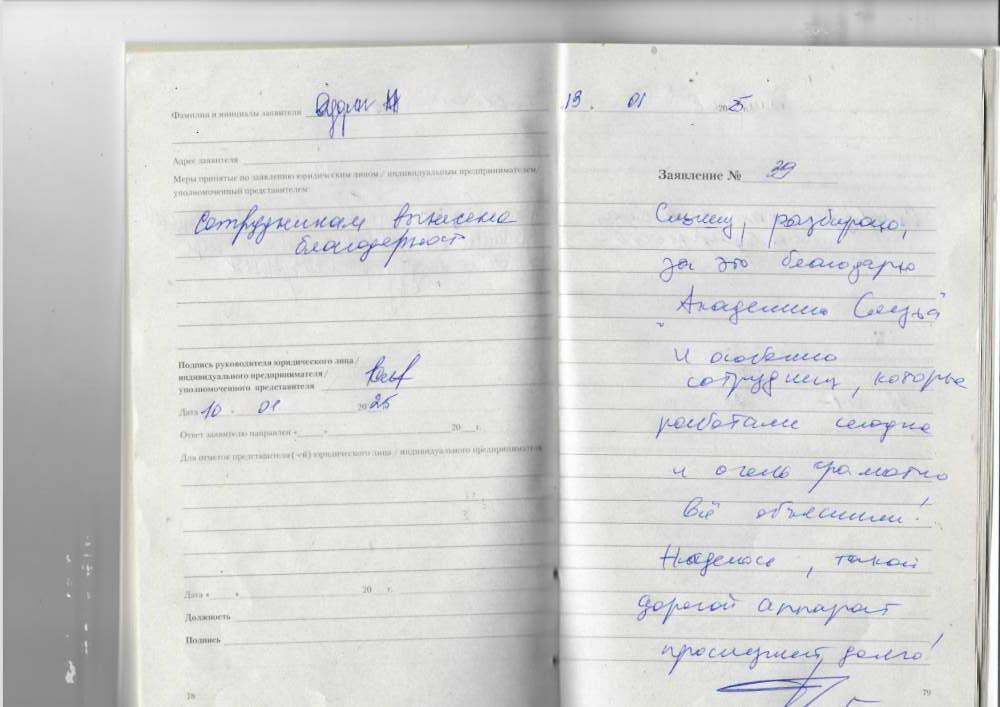 Фамилия и инициалы заявителя
Адрес заявителя
Меры принятые по заявлению юридическим лицом / индивидуальным предпринимателем/
уполномоченный представителем:
Сотрудникам вынесена
благодарност
Подпись руководителя юридического лица /
индивидуального предпринимателя /
уполномоченного представителя
Дата 10. 01 2025
Ответ заявителю направлен «___»___ 20 __ г.
Для отметок представителя (-ей) юридического лица / индивидуального предпринимателя
Дата « » 20 г.
Должность
Подпись
78
19. 01 2025
Заявление № 39
Слышу, разбираю,
за это благодарю
"Академию Слуха"
и особенно
сотрудниц, которые
работали сегодня
и очень грамотно
всё объяснили!
Надеюсь, такой
дорогой аппарат
прослужит долго!
79